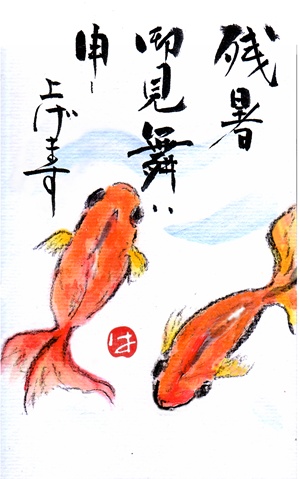 残暑
御見舞い
申し
上げます
は